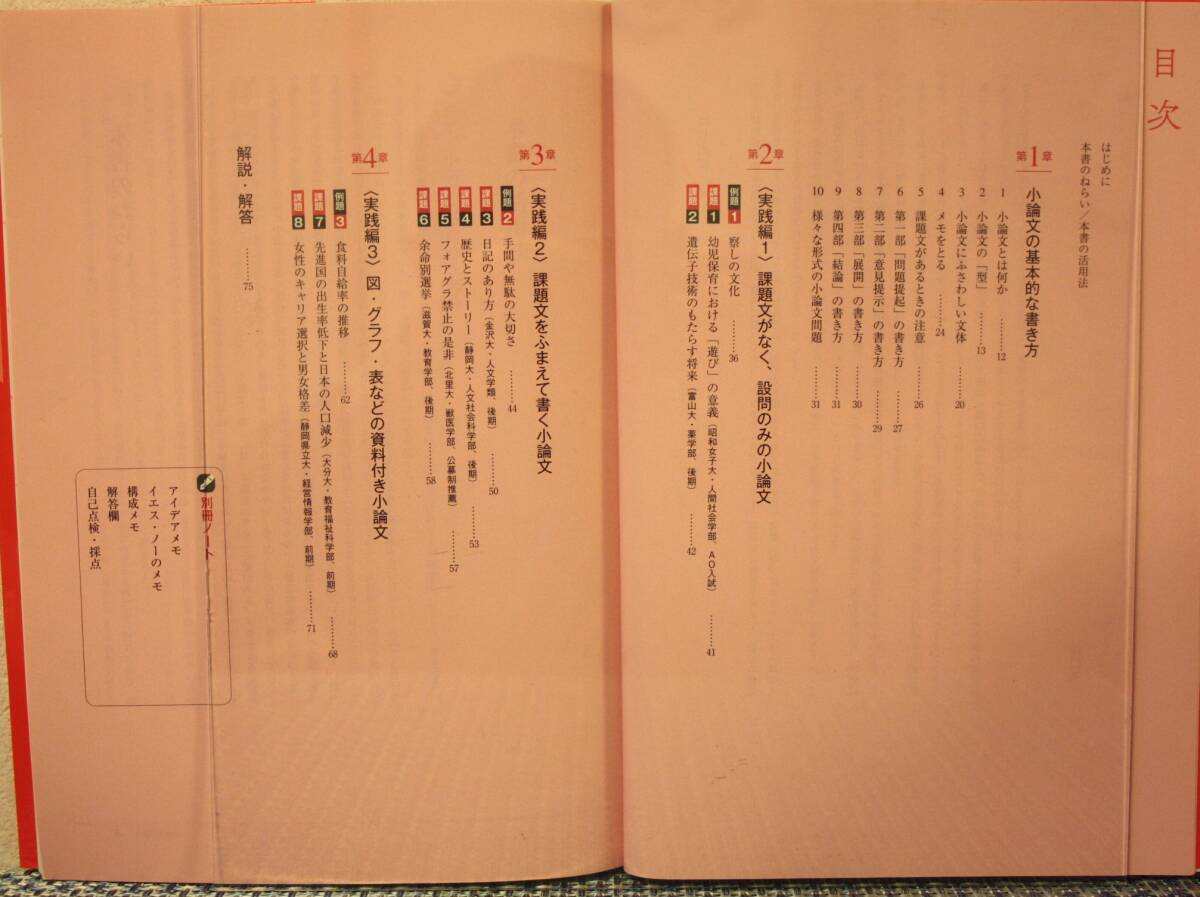 目次
はじめに
本書のねらい／本書の活用法
第1章 小論文の基本的な書き方
1 小論文とは何か ………12
2 小論文の「型」 ………13
3 小論文にふさわしい文体 ………20
4 メモをとる ………24
5 課題文があるときの注意 ………26
6 第一部「問題提起」の書き方 ………27
7 第二部「意見提示」の書き方 ………29
8 第三部「展開」の書き方 ………30
9 第四部「結論」の書き方 ………31
10 様々な形式の小論文問題 ………31
第2章 〈実践編1〉課題文がなく、設問のみの小論文
例題1 察しの文化 ………36
課題1 幼児保育における「遊び」の意義（昭和女子大・人間社会学部、AO入試） ………41
課題2 遺伝子技術のもたらす将来（富山大・薬学部、後期） ………42
第3章 〈実践編2〉課題文をふまえて書く小論文
例題2 手間や無駄の大切さ ………44
課題3 日記のあり方（金沢大・人文学類、後期） ………50
課題4 歴史とストーリー（静岡大・人文社会科学部、後期） ………53
課題5 フォアグラ禁止の是非（北里大・獣医学部、公募制推薦） ………57
課題6 余命別選挙（滋賀大・教育学部、後期） ………58
第4章 〈実践編3〉図・グラフ・表などの資料付き小論文
例題3 食料自給率の推移 ………62
課題7 先進国の出生率低下と日本の人口減少（大分大・教育福祉科学部、前期） ………68
課題8 女性のキャリア選択と男女格差（静岡県立大・経営情報学部、前期） ………71
解説・解答 ………75
別冊ノート
アイデアメモ
イエス・ノーのメモ
構成メモ
解答欄
自己点検・採点